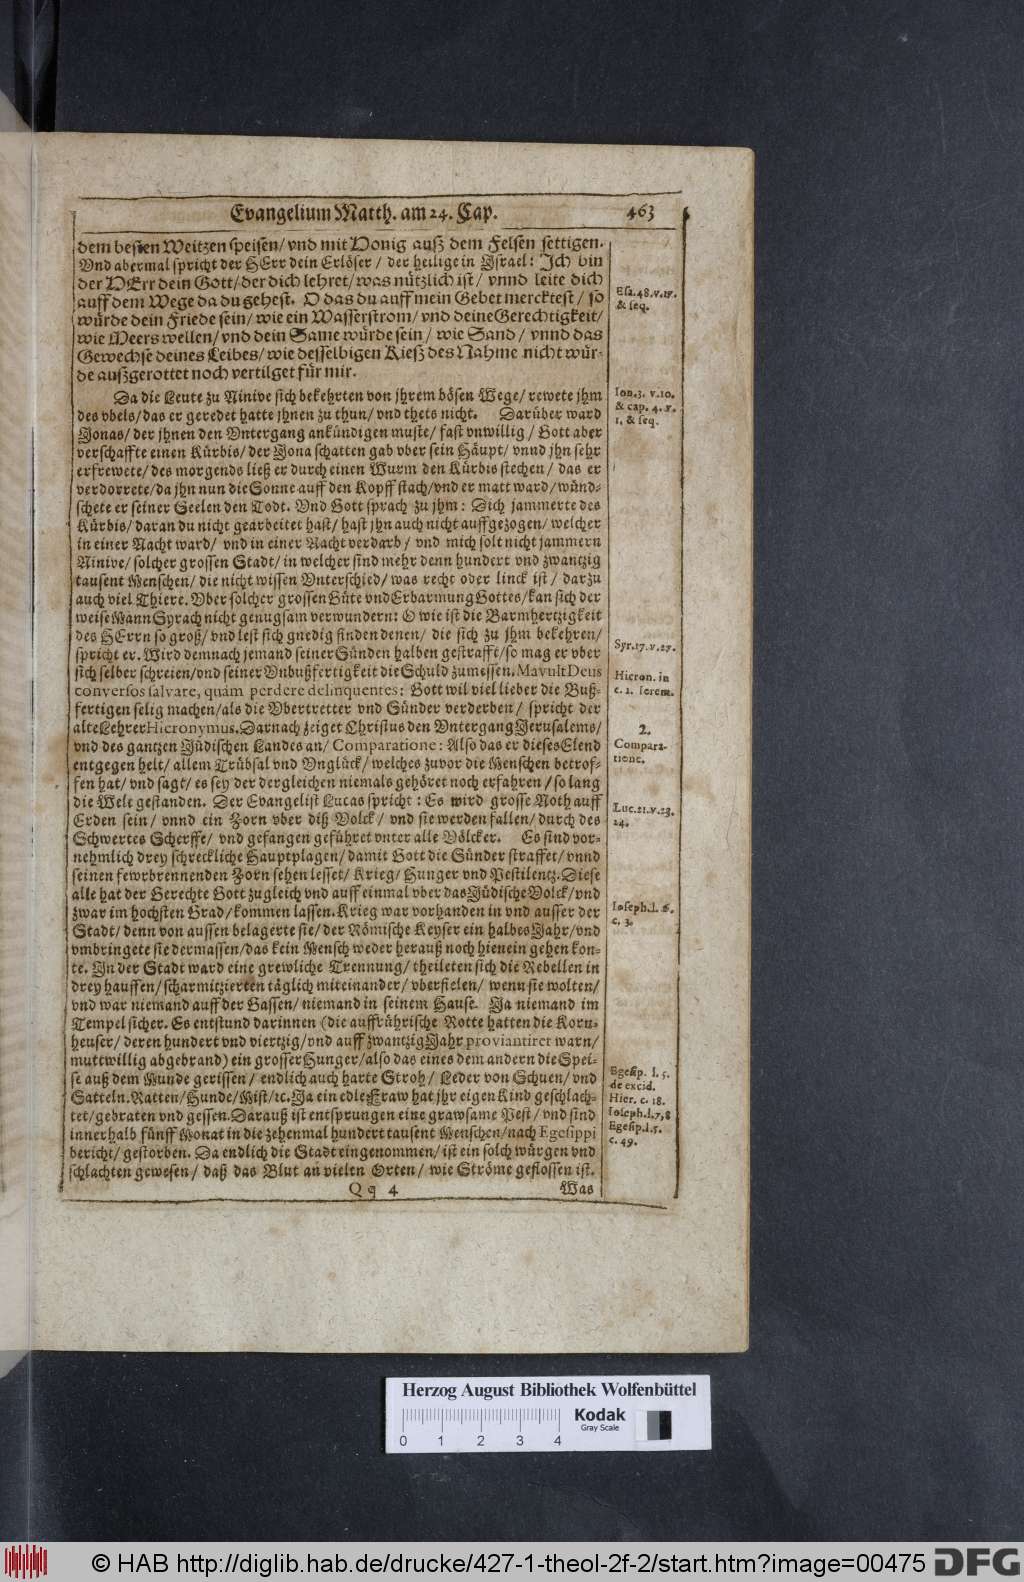 Evangelium Matth. am 24. Cap. 463
dem besten Weitzen speisen/ vnd mit Honig auß dem Felsen settigen.
Vnd abermal spricht der HErr dein Erlöser/ der heilige in Jsrael: Jch bin
der HErr dein Gott/ der dich lehret/ was nützlich ist/ vnnd leite dich
auff dem Wege da du gehest. O das du auff mein Gebet mercktest/ so
würde dein Friede sein/ wie ein Wasserstrom/ vnd deine Gerechtigkeit/
wie Meers wellen/ vnd dein Same würde sein/ wie Sand/ vnnd das
Gewechse deines Leibes/ wie desselbigen Kieß des Nahme nicht wür-
de außgerottet noch vertilget für mir.
Esa. 48. v. 17.
& seq.
Da die Leute zu Ninive sich bekehrten von jhrem bösen Wege/ rewete jhm
des vbels/ das er geredet hatte jhnen zu thun/ vnd thets nicht. Darüber ward
Jonas/ der jhnen den Vntergang ankündigen muste/ fast vnwillig/ Gott aber
verschaffte einen Kürbis/ der Jona schatten gab vber sein Häupt/ vnnd jhn sehr
erfrewete/ des morgends ließ er durch einen Wurm den Kürbis stechen/ das er
verdorrete/ da jhn nun die Sonne auff den Kopff stach/ vnd er matt ward/ wünd-
schete er seiner Seelen den Todt. Vnd Gott sprach zu jhm: Dich jammerte des
Kürbis/ daran du nicht gearbeitet hast/ hast jhn auch nicht auffgezogen/ welcher
in einer Nacht ward/ vnd in einer Nacht verdarb/ vnd mich solt nicht jammern
Ninive/ solcher grossen Stadt/ in welcher sind mehr denn hundert vnd zwantzig
tausent Menschen/ die nicht wissen Vnterschied/ was recht oder linck ist/ darzu
auch viel Thiere. Vber solcher grossen Güte vnd Erbarmung Gottes/ kan sich der
weise Mann Syrach nicht genugsam verwundern: O wie ist die Barmhertzigkeit
des HErrn so groß/ vnd lest sich gnedig finden denen/ die sich zu jhm bekehren/
spricht er. Wird demnach jemand seiner Sünden halben gestrafft/ so mag er vber
sich selber schreien/ vnd seiner Vnbußfertigkeit die Schuld zumessen. Mavult Deus
conversos salvare, quàm perdere delinquentes: Gott wil viel lieber die Buß-
fertigen selig machen/ als die Vbertretter vnd Sünder verderben/ spricht der
alte Lehrer Hieronymus. Darnach zeiget Christus den Vntergang Jerusalems/
vnd des gantzen Jüdischen Landes an/ Comparatione: Also das er dieses Elend
entgegen helt/ allem Trübsal vnd Vnglück/ welches zuvor die Menschen betrof-
fen hat/ vnd sagt/ es sey der dergleichen niemals gehöret noch erfahren/ so lang
die Welt gestanden. Der Evangelist Lucas spricht: Es wird grosse Noth auff
Erden sein/ vnnd ein Zorn vber diß Volck/ vnd sie werden fallen/ durch des
Schwertes Scherffe/ vnd gefangen geführet vnter alle Völcker. Es sind vor-
nehmlich drey schreckliche Hauptplagen/ damit Gott die Sünder straffet/ vnnd
seinen fewrbrennenden Zorn sehen lesset/ Krieg/ Hunger vnd Pestilentz. Diese
alle hat der Gerechte Gott zugleich vnd auff einmal vber das Jüdische Volck/ vnd
zwar im hochsten Grad/ kommen lassen. Krieg war vorhanden in vnd ausser der
Stadt/ denn von aussen belagerte sie/ der Römische Keyser ein halbes Jahr/ vnd
vmbringete sie dermassen/ das kein Mensch weder herauß noch hienein gehen kon-
te. Jn der Stadt ward eine grewliche Trennung/ theileten sich die Rebellen in
drey hauffen/ scharmitzierten täglich miteinander/ vberfielen/ wenn sie wolten/
vnd war niemand auff der Gassen/ niemand in seinem Hause. Ja niemand im
Tempel sicher. Es entstund darinnen (die auffrührische Rotte hatten die Korn-
heuser/ deren hundert vnd viertzig/ vnd auff zwantzig Jahr proviantiret warn/
muttwillig abgebrand) ein grosser Hunger/ also das eines dem andern die Spei-
se auß dem Munde gerissen/ endlich auch harte Stroh/ Leder von Schuen/ vnd
Satteln. Ratten/ Hunde/ Mist/ ꝛc. Ja ein edle Fraw hat jhr eigen Kind geschlach-
tet/ gebraten vnd gessen. Darauß ist entsprungen eine grawsame Pest/ vnd sind
innerhalb fünff Monat in die zehenmal hundert tausent Menschen/ nach Egesippi
bericht/ gestorben. Da endlich die Stadt eingenommen/ ist ein solch würgen vnd
schlachten gewesen/ daß das Blut an vielen Orten/ wie Ströme geflossen ist.
Ion. 3. v. 10.
& cap. 4. v.
1. & seq.
Syr. 17. v. 27.
Hieron. in
c. 1. Ierem.
2.
Compara-
tione.
Luc. 21. v. 23.
24.
Ioseph. l. 6.
c. 3.
Egesip. l. 5.
de excid.
Hier. c. 18.
Ioseph. l. 7, 8
Egesip. l. 5.
c. 49.
Q q 4 Was
Herzog August Bibliothek Wolfenbüttel
Kodak
Gray Scale
0 1 2 3 4
© HAB http://diglib.hab.de/drucke/427-1-theol-2f-2/start.htm?image=00475 DFG